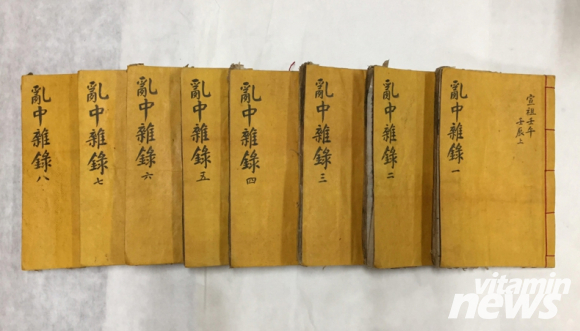 亂中雜錄 一
宣祖壬午
壬辰上
亂中雜錄 二
亂中雜錄 三
亂中雜錄 四
亂中雜錄 五
亂中雜錄 六
亂中雜錄 七
亂中雜錄 八
vitamin
news